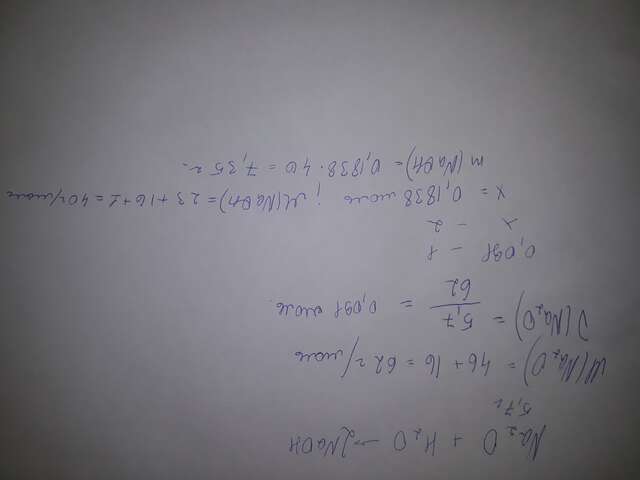 Na₂O + H₂O → 2NaOH
5,7г
M(Na₂O) = 46 + 16 = 62 г/моль
ν(Na₂O) = 5,7/62 = 0,091 моль
0,091 – 1
x – 2
x = 0,1838 моль ; M(NaOH) = 23 + 16 + 1 = 40 г/моль
m(NaOH) = 0,1838 · 40 = 7,35 г.